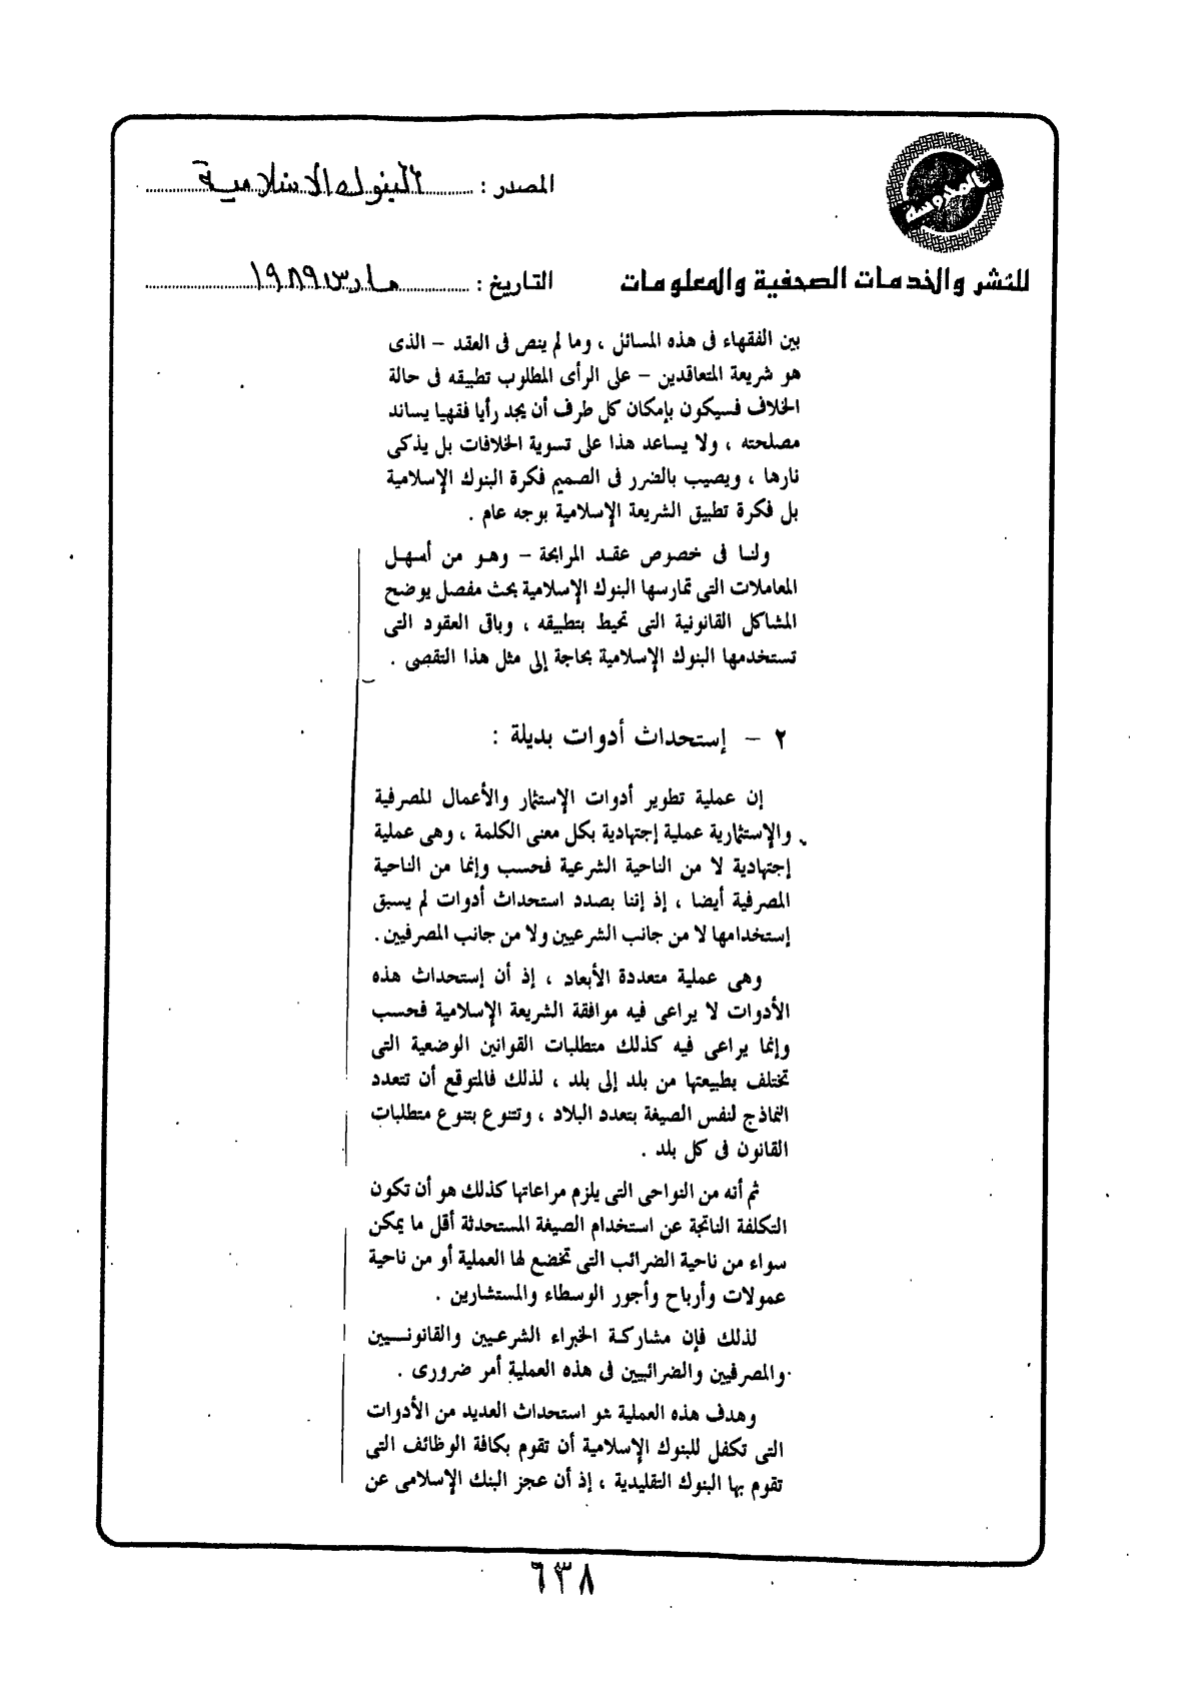 المصدر : البنوك الاسلامية
للنشر والخدمات الصحفية والمعلومات
التاريخ : مارس ١٩٨٩
بين الفقهاء فى هذه المسائل ، وما لم ينص فى العقد – الذى
هو شريعة المتعاقدين – على الرأى المطلوب تطبيقه فى حالة
الخلاف فسيكون بإمكان كل طرف أن يجد رأيا فقهيا يساند
مصلحته ، ولا يساعد هذا على تسوية الخلافات بل يذكى
نارها ، ويصيب بالضرر فى الصميم فكرة البنوك الإسلامية
بل فكرة تطبيق الشريعة الإسلامية بوجه عام .
ولنا فى خصوص عقد المرابحة – وهو من أسهل
المعاملات التى تمارسها البنوك الإسلامية بحث مفصل يوضح
المشاكل القانونية التى تحيط بتطبيقه ، وباقى العقود التى
تستخدمها البنوك الإسلامية بحاجة إلى مثل هذا التقصى .
٢ – إستحداث أدوات بديلة :
إن عملية تطوير أدوات الإستثمار والأعمال المصرفية
والإستثمارية عملية إجتهادية بكل معنى الكلمة ، وهى عملية
إجتهادية لا من الناحية الشرعية فحسب وإنما من الناحية
المصرفية أيضا ، إذ إننا بصدد استحداث أدوات لم يسبق
إستخدامها لا من جانب الشرعيين ولا من جانب المصرفيين .
وهى عملية متعددة الأبعاد ، إذ أن إستحداث هذه
الأدوات لا يراعى فيه موافقة الشريعة الإسلامية فحسب
وإنما يراعى فيه كذلك متطلبات القوانين الوضعية التى
تختلف بطبيعتها من بلد إلى بلد ، لذلك فالمتوقع أن تتعدد
النماذج لنفس الصيغة بتعدد البلاد ، وتتنوع بتنوع متطلبات
القانون فى كل بلد .
ثم أنه من النواحى التى يلزم مراعاتها كذلك هو أن تكون
التكلفة الناتجة عن استخدام الصيغة المستحدثة أقل ما يمكن
سواء من ناحية الضرائب التى تخضع لها العملية أو من ناحية
عمولات وأرباح وأجور الوسطاء والمستشارين .
لذلك فإن مشاركة الخبراء الشرعيين والقانونيين
والمصرفيين والضرائبيين فى هذه العملية أمر ضرورى .
وهدف هذه العملية هو استحداث العديد من الأدوات
التى تكفل للبنوك الإسلامية أن تقوم بكافة الوظائف التى
تقوم بها البنوك التقليدية ، إذ أن عجز البنك الإسلامى عن
٦٣٨